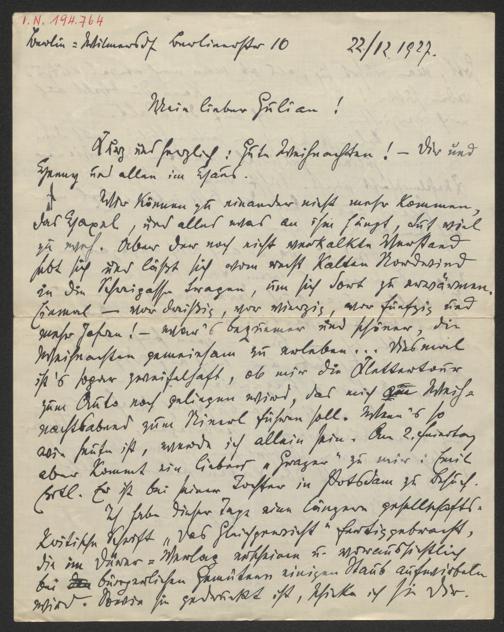 I.N. 194.764
Berlin=Wilmersdf. Berlinerstr 10 22/12 1927.
Mein lieber Julian!
Kurz und herzlich: Gute Weihnachten! – Dir und
Jenny und allen im Haus.
Wir können zu einander nicht mehr kommen,
das und alles was an ihm hängt, tut viel
zu weh. Aber der noch nicht verkalkte Verstand
hebt sich und läßt sich vom recht kalten Nordwind
in die tragen, um sich dort zu erwärmen.
Einmal – vor dreißig, vor vierzig, vor fünfzig und
mehr Jahren! – war's bequemer und schöner, die
Weihnachten gemeinsam zu erleben... Diesmal
ist's sogar zweifelhaft, ob mir die Klettertour
zum Auto noch gelingen wird, das mich am Weih=
nachtsabend zum führen soll. Wenn's so
wie heute ist, werde ich allein sein. Am 2. Feiertag
aber kommt ein lieber „Grazer" zu mir: Emil
Ertl. Er ist bei seiner Tochter in Potsdam zu Besuch.
Ich habe dieser Tage eine längere gesellschafts=
kritische Schrift „Das Gleichgewicht" fertiggebracht,
die im Dürer=Verlag erscheinen u. voraussichtlich
bei bürgerlichen Gemütern einigen Staub aufwirbeln
wird. Sowie sie gedruckt ist, schicke ich sie Dir.